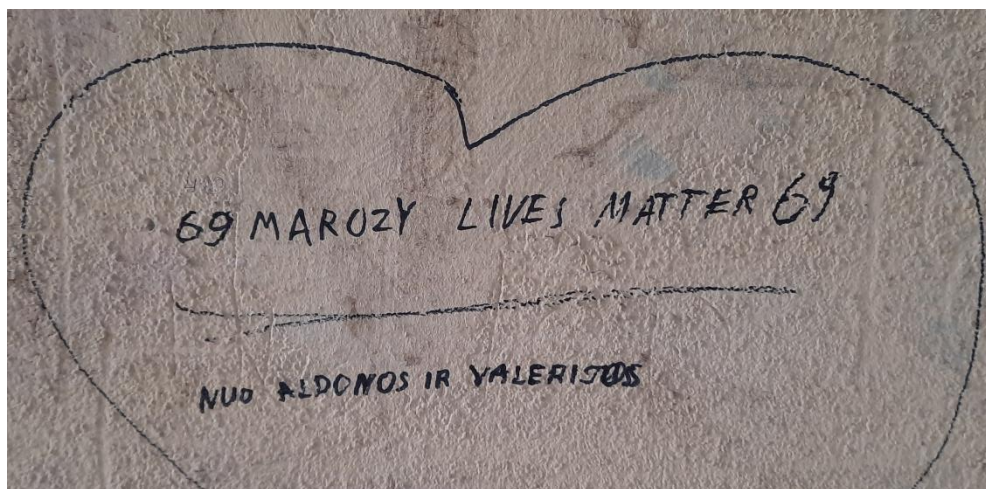 69 MAROZY LIVES MATTER 69
NUO ALDONOS IR VALERIJOS